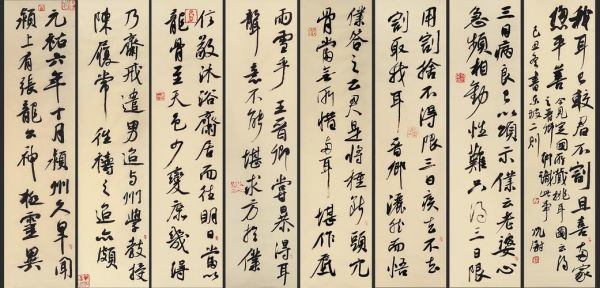 元祐六年十月潁州久旱聞
潁上有張龍公神極靈異
乃齋戒遣男迨與州學教授
陳履常往禱之迨亦頗
信敬沐浴齋居而往明日當以
龍骨至天色少變庶幾得
雨雪乎王晉卿嘗暴得耳
聾意不能堪求方於僕
僕答之云君是將種斷頭穴
胷當無所惜兩耳堪作底
用割捨不得限三日疾去不去
割取我耳晉卿灑然而悟
三日病良已以頌示僕云老婆心
急頻相勸性難只得三日限
我耳已較君不割且喜兩家
總平善今見定國所藏挑耳圖云得
之晉卿聊識此事
己丑冬書東坡二則